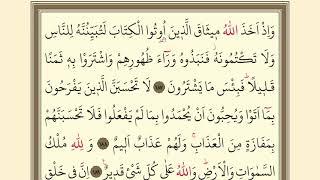 وَاِذْ اَخَذَ اللّٰهُ مٖيثَاقَ الَّذٖينَ اُو۫تُوا الْكِتَابَ لَتُبَيِّنُنَّهُ لِلنَّاسِ
وَلَا تَكْتُمُونَهُؗ فَنَبَذُوهُ وَرَٓاءَ ظُهُورِهِمْ وَاشْتَرَوْا بِهٖ ثَمَنًا
قَلٖيلًاؕ فَبِئْسَ مَا يَشْتَرُونَ ﴿١٨٧﴾ لَا تَحْسَبَنَّ الَّذٖينَ يَفْرَحُونَ
بِمَٓا اَتَوْا وَيُحِبُّونَ اَنْ يُحْمَدُوا بِمَا لَمْ يَفْعَلُوا فَلَا تَحْسَبَنَّهُمْ
بِمَفَازَةٍ مِنَ الْعَذَابِۚ وَلَهُمْ عَذَابٌ اَلٖيمٌ ﴿١٨٨﴾ وَلِلّٰهِ مُلْكُ
السَّمٰوَاتِ وَالْاَرْضِؕ وَاللّٰهُ عَلٰى كُلِّ شَیْءٍ قَدٖيرٌ ﴿١٨٩﴾ اِنَّ فٖي خَلْقِ